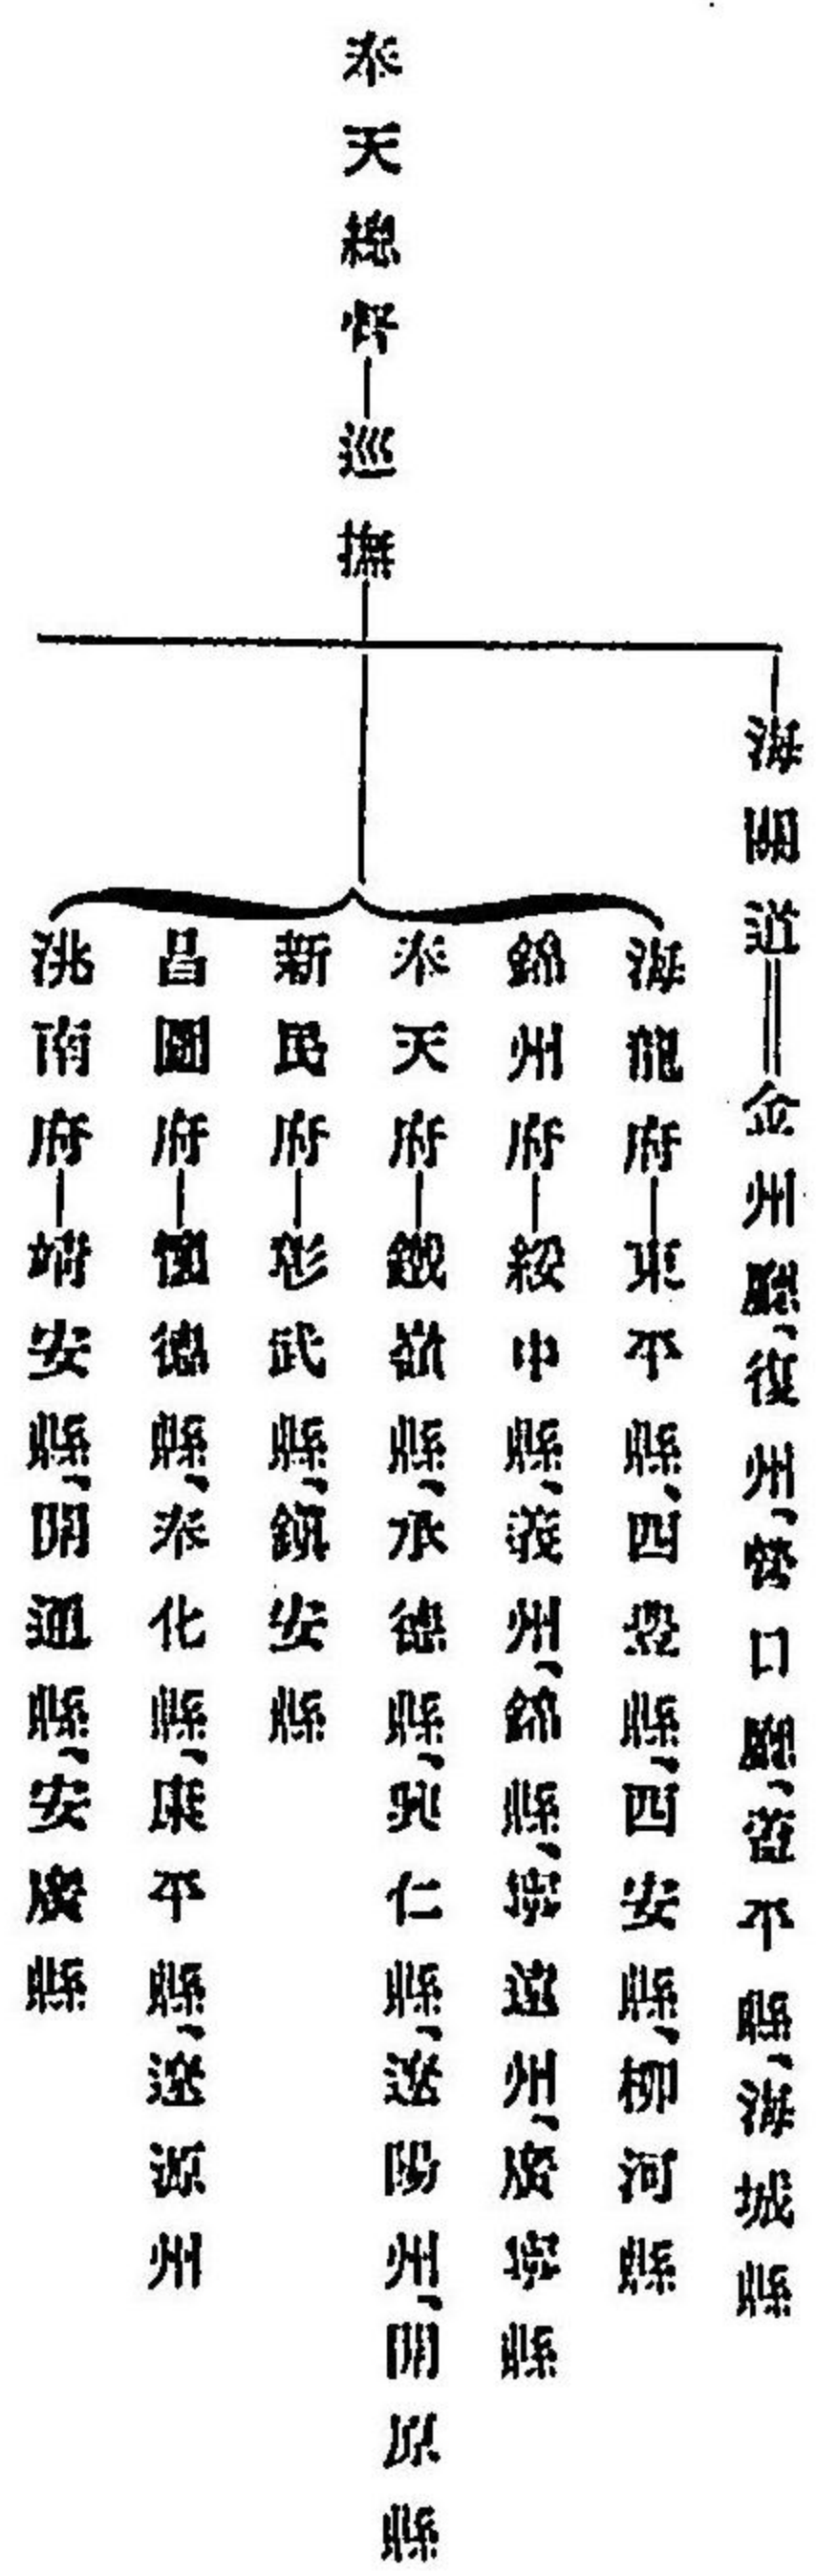 奉天總督—巡撫
海關道＝金州廳、復州、營口廳、蓋平縣、海城縣
海龍府—東平縣、西豊縣、西安縣、柳河縣
錦州府—綏中縣、義州、錦縣、寧遠州、廣寧縣
奉天府—鐵嶺縣、承德縣、興仁縣、遼陽州、開原縣
新民府—彰武縣、鎮安縣
昌圖府—懷德縣、奉化縣、康平縣、遼源州
洮南府—靖安縣、開通縣、安廣縣